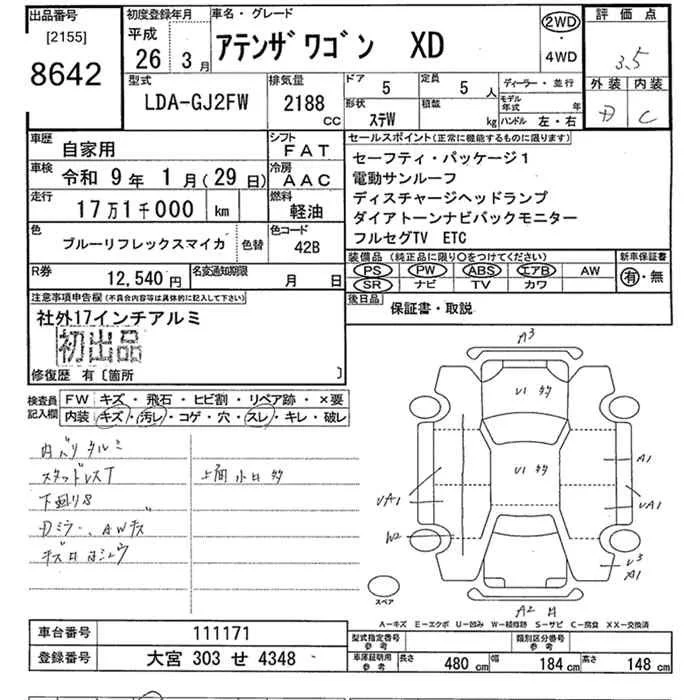 出品番号
[2155]
8642
初度登録年月
平成
26年 3月
車名・グレード
アテンザワゴン XD
2WD
・
4WD
評価点
3.5
外装 内装
C
型式
LDA-GJ2FW
排気量
2188 CC
ドア 5
定員 5 人
形状 ステW
積載 kg
ディーラー・並行
モデル年式 年
ハンドル 左・右
車歴 自家用
シフト FAT
車検 令和 9年 1月(29日)
冷房 AAC
走行 17万1千000 km
燃料 軽油
色 ブルーリフレックスマイカ
色替
色コード 42B
R券 12,540円
名変通知期限 月 日
セールスポイント(正常に機能するものに限ります)
セーフティ・パッケージ1
電動サンルーフ
ディスチャージヘッドランプ
ダイアトーンナビバックモニター
フルセグTV ETC
装備品(純正品に限り○をつけてください)
新車保証書
PS PW ABS エアB AW
SR ナビ TV カワ
有・無
後日品 保証書・取説
注意事項申告欄(不具合内容等は具体的に記入して下さい)
社外17インチアルミ
初出品
修復歴 有〔箇所 〕
検査員記入欄
FW キズ・飛石・ヒビ割・リペア跡・×要
内装 キズ・汚レ・コゲ・穴・スレ・キレ・破レ
スタッドレスT
下廻りS
上面小キズ多
A3
U1 多
U1 多
A1
UA1
UA1
W2
U3
A1
A2 キ
スペア
A−キズ E−エクボ U−凹み W−補修跡 S−サビ C−腐食 XX−交換済
車台番号 111171
登録番号 大宮 303 せ 4348
型式指定番号 参考
類別区分番号 参考
車庫証明用 参考
長さ 480 cm
幅 184 cm
高さ 148 cm